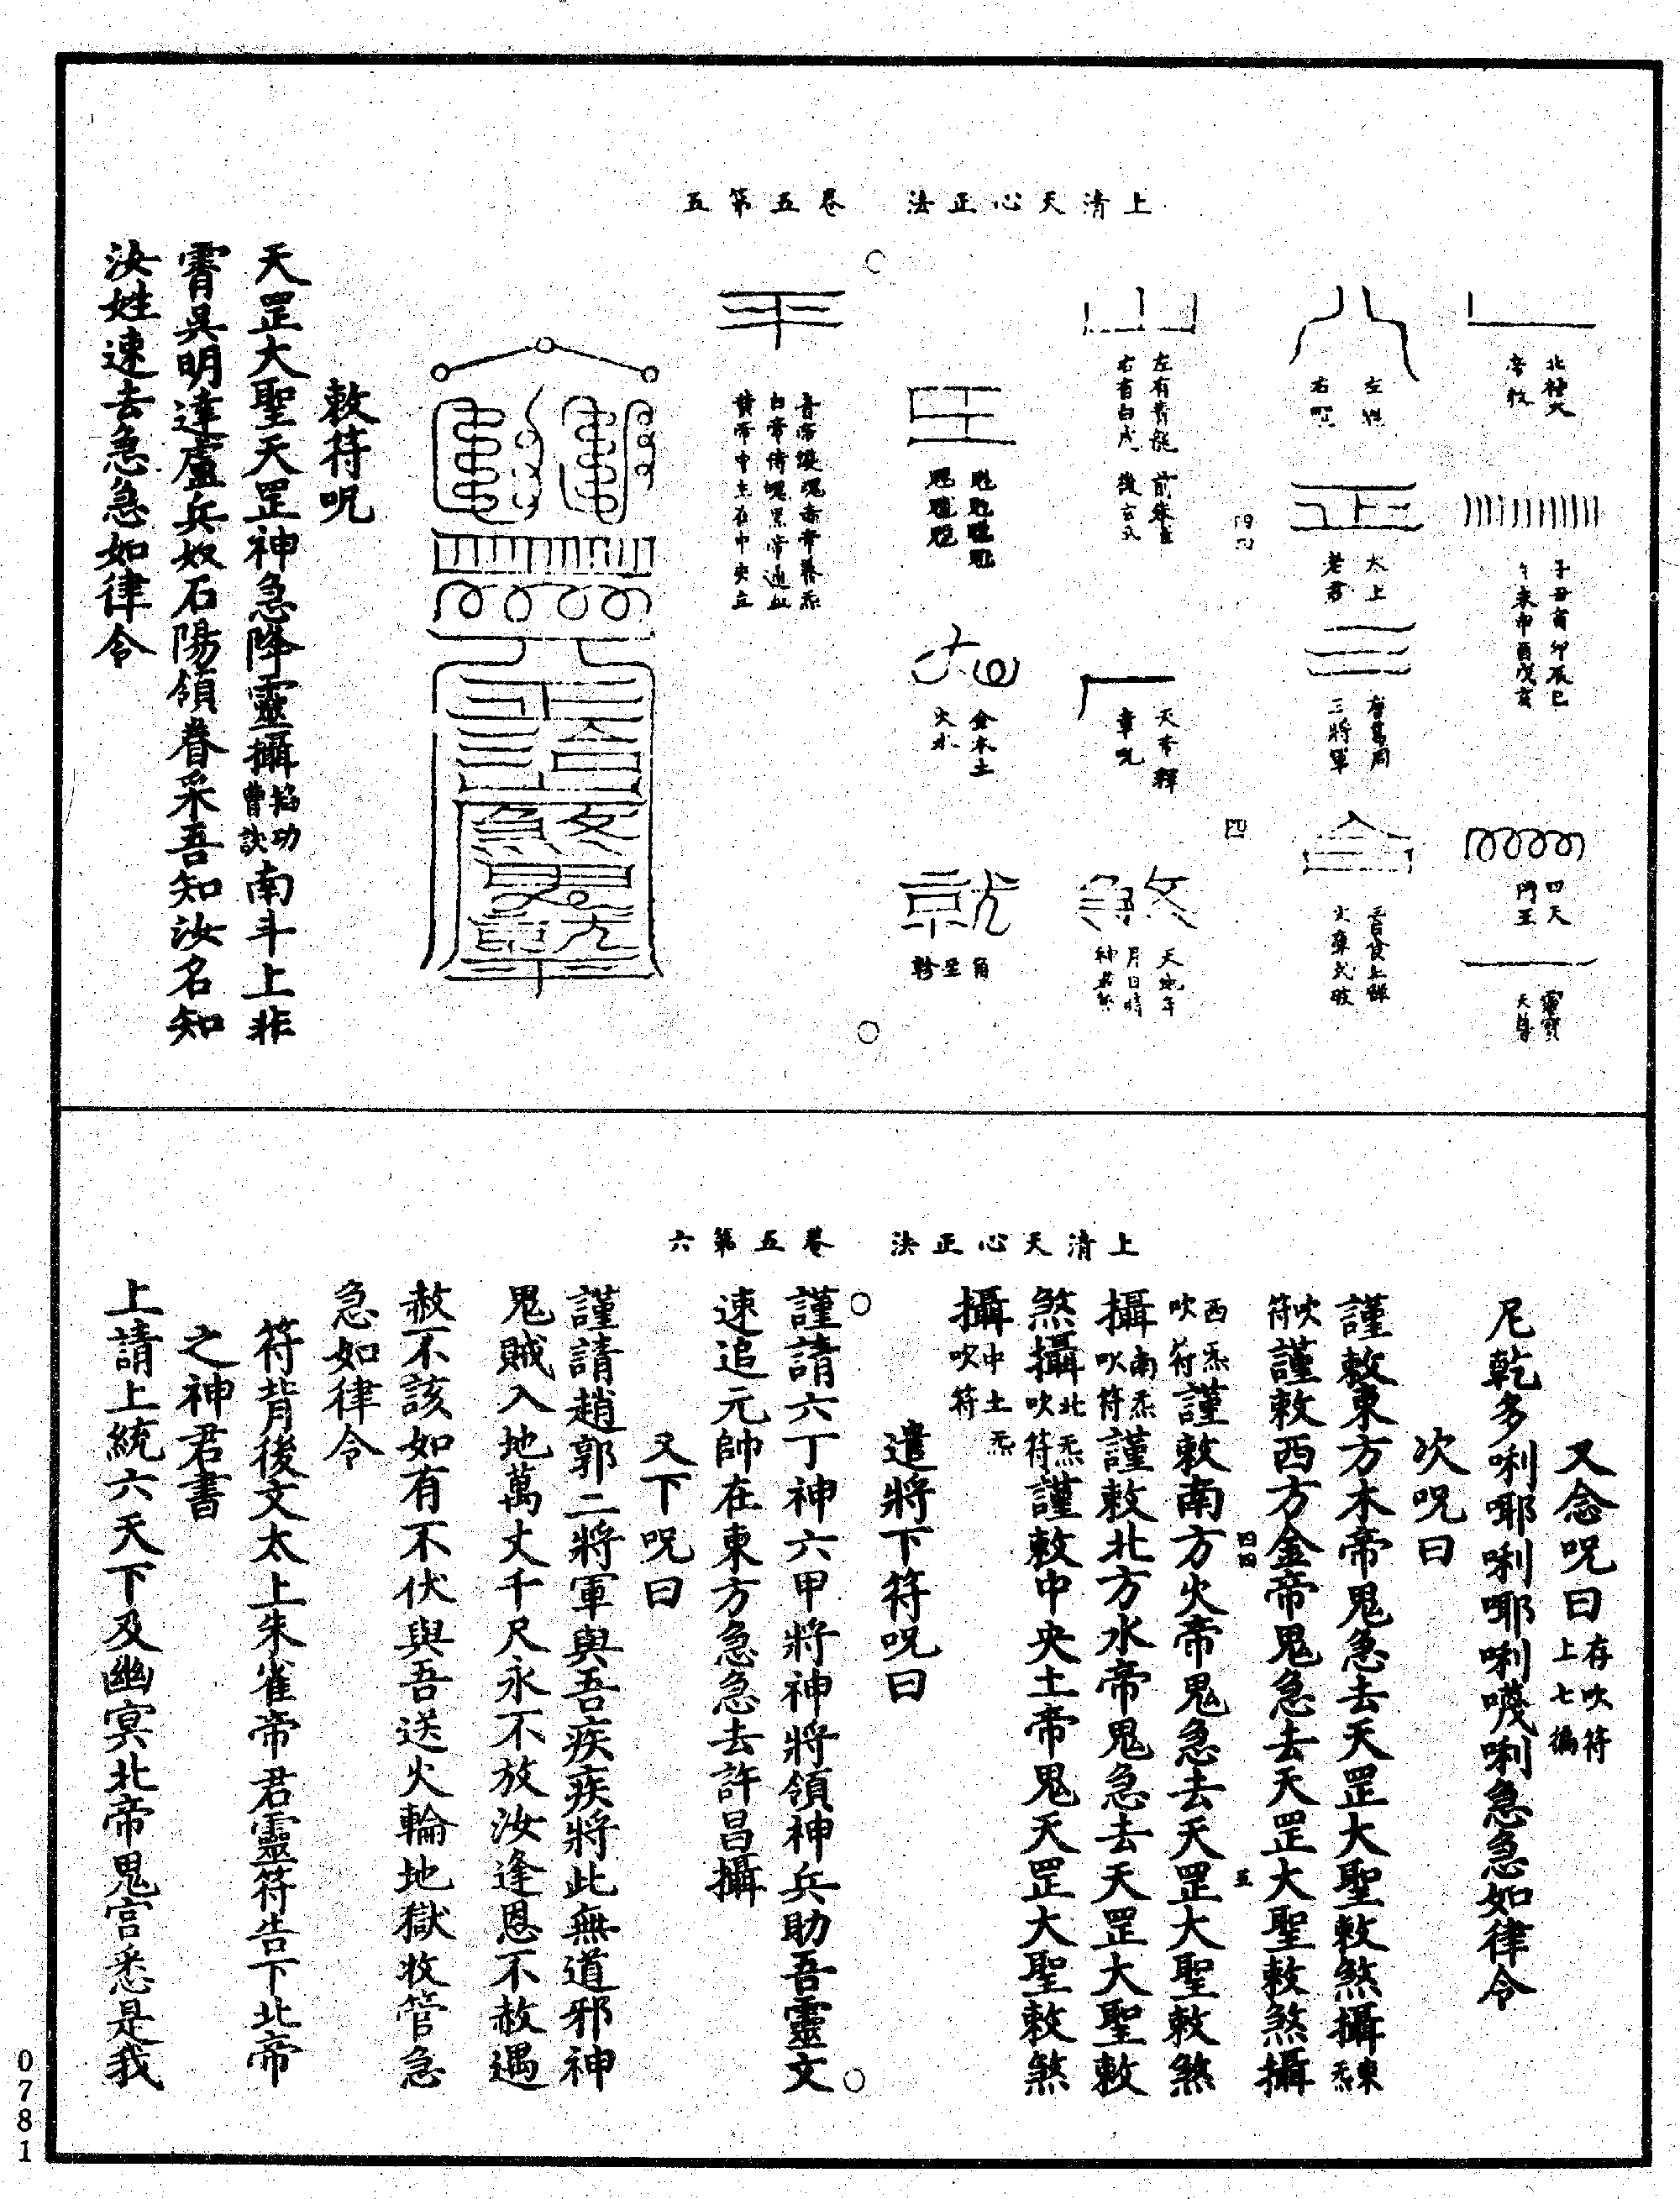 上清天心正法　卷五第五
北極大
帝敕
子丑寅卯辰巳
午未申酉戌亥
四天
門王
靈寶
天尊
左
右
太上
老君
唐葛周
三將軍
左有青龍
右有白虎
前朱雀
後玄武
天帝釋
章咒
天地年
月日時
金木土
火水
角
至
軫
黃帝中主在中央立
敕符呪
天罡大聖天罡神急降靈攝掐功曹訣南斗上非
霄吳明達盧兵奴石陽領眷采吾知汝名知
汝姓速去急急如律令
四
上清天心正法　卷五第六
又念呪曰存吹符上七徧
尼乾多唎㖿唎㖿唎嘰唎急急如律令
次呪曰
謹敕東方木帝鬼急去天罡大聖敕煞攝東炁
吹符謹敕西方金帝鬼急去天罡大聖敕煞攝
西炁吹符謹敕南方火帝鬼急去天罡大聖敕煞
攝南炁吹符謹敕北方水帝鬼急去天罡大聖敕
煞攝北炁吹符謹敕中央土帝鬼天罡大聖敕煞
攝中土炁吹符
遣將下符呪曰
謹請六丁神六甲將神將領神兵助吾靈文
速追元帥在東方急急去許昌攝
又下呪曰
謹請趙郭二將軍與吾疾疾將此無道邪神
鬼賊入地萬丈千尺永不放汝逢恩不赦遇
赦不該如有不伏與吾送火輪地獄收管急
急如律令
符背後文太上朱雀帝君靈符告下北帝
之神君書
上請上統六天下及幽冥北帝鬼宮悉是我
五
0781